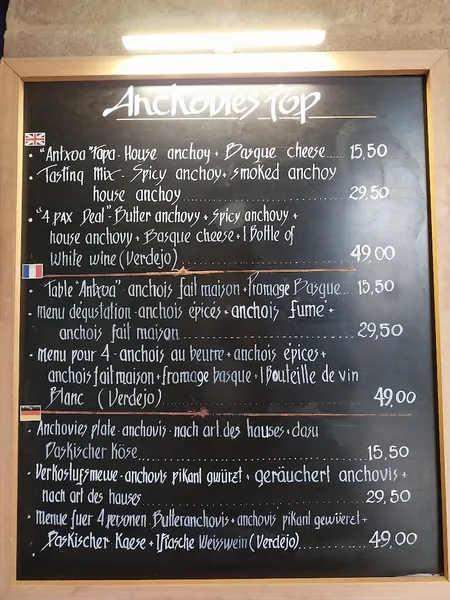 Anchovies Top
• "Antxoa" Tapa - House anchoy + Basque cheese..... 15,50
• Tasting Mix - Spicy anchoy + smoked anchoy
house anchoy.......... 29,50
• "4 pax Deal" - Butter anchovy + spicy anchovy +
house anchovy + Basque cheese + 1 Bottle of
White wine (Verdejo).......... 49,00
• Table "Antxoa" - anchois fait maison + fromage Basque..... 15,50
• menu dégustation - anchois épices + anchois fumé +
anchois fait maison.......... 29,50
• Menu pour 4 - anchois au beurre + anchois épices +
anchois fait maison + fromage basque + 1 Bouteille de vin
Blanc (Verdejo).......... 49,00
• Anchovies plate - anchovis - nach art des hauses + dasu
Baskischer Köse.......... 15,50
• Verkostufsmewe - anchovis pikant gwürzt + geräuchert anchovis +
nach art des hauses.......... 29,50
• Menue fuer 4 personen Butteranchovis + anchovis pikant gewüerzt +
Baskischer Kaese + 1 Flasche Weisswein (Verdejo).......... 49,00